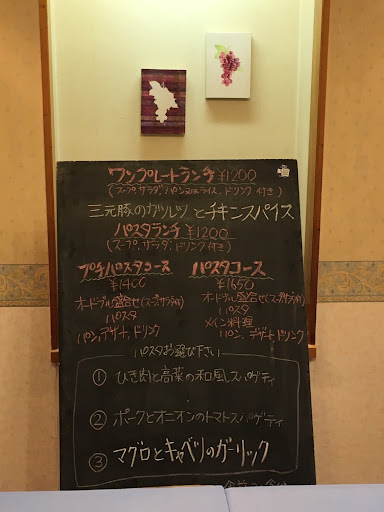 ワンプレートランチ ¥1200
(スープ、サラダ、パン又はライス、ドリンク付き)
三元豚のカツレツとチキンスパイス
パスタランチ ¥1200
(スープ、サラダ、ドリンク付き)
プチパスタコース
¥1400
オードブル盛合せ(スープ、サラダ付)
パスタ
パン、デザート、ドリンク
パスタコース
¥1650
オードブル盛合せ(スープ、サラダ付)
パスタ
メイン料理
パン、デザート、ドリンク
パスタお選び下さい
① ひき肉と高菜の和風スパゲティ
② ポークとオニオンのトマトスパゲティ
③ マグロとキャベツのガーリック